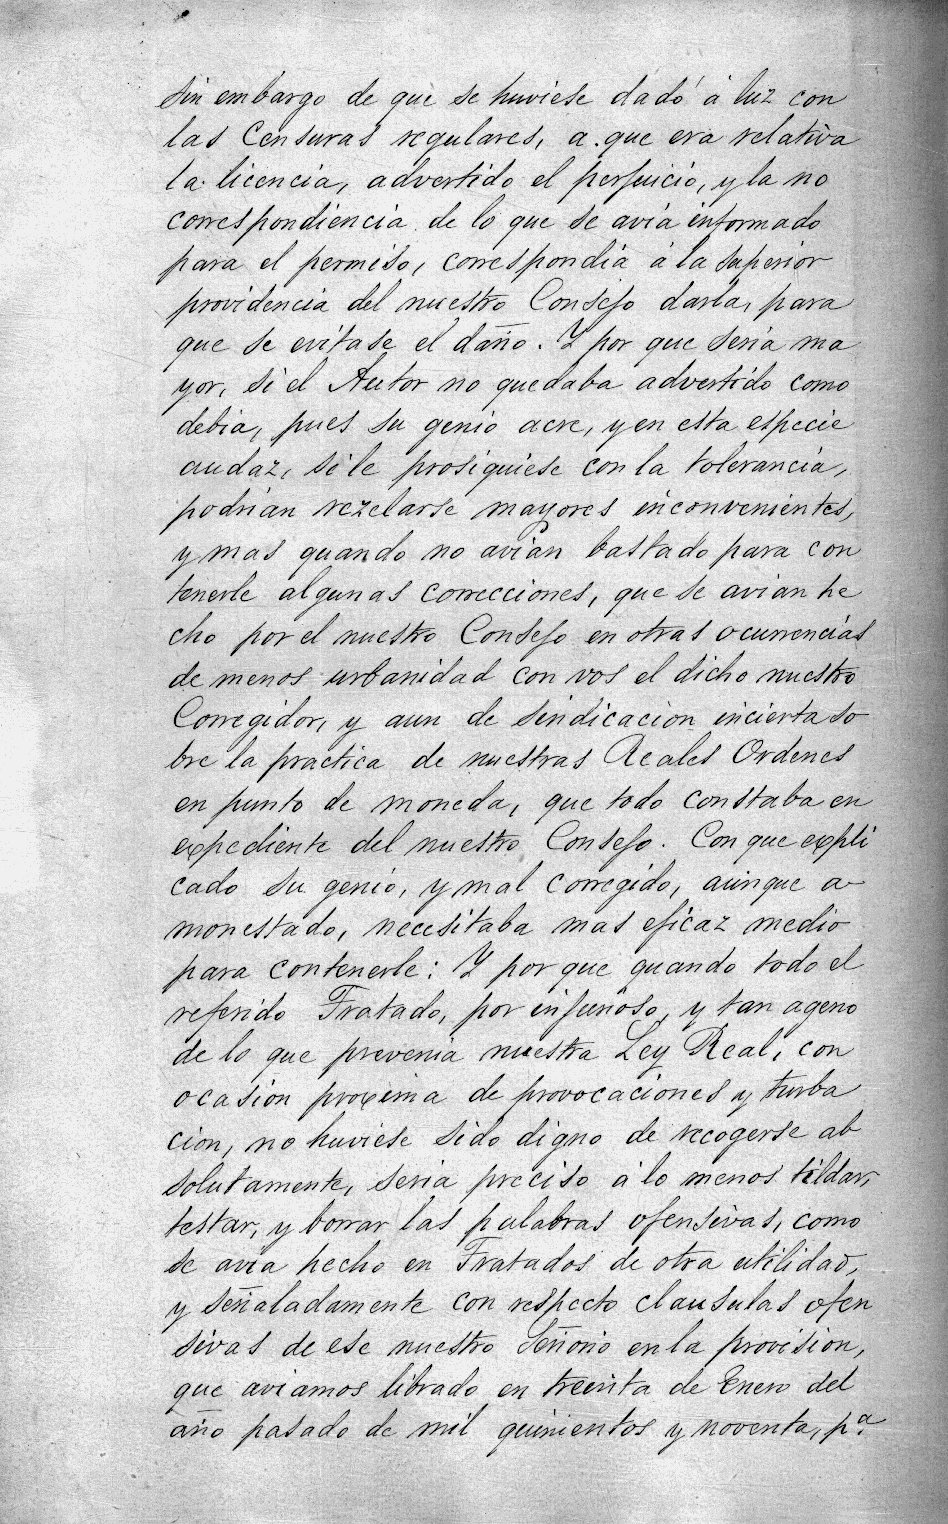 sin embargo de que se huviese dado á luz con
las Censuras regulares, a que era relativa
la licencia, advertido el perjuicio, y la no
correspondiencia de lo que se avia informado
para el permiso, correspondia á la superior
providencia del nuestro Consejo darla, para
que se evitase el daño. Y por que seria ma
yor, si el Autor no quedaba advertido como
debia, pues su genio acre, y en esta especie
audaz, si le prosiguiese con la tolerancia,
podrian rezelarse mayores inconvenientes,
y mas quando no avian bastado para con
tenerle algunas correcciones, que se avian he
cho por el nuestro Consejo en otras ocurrencias
de menos urbanidad con vos el dicho nuestro
Corregidor, y aun de sindicacion incierta so
bre la practica de nuestras Reales Ordenes
en punto de moneda, que todo constaba en
expediente del nuestro Consejo. Con que expli
cado su genio, y mal corregido, aunque a
monestado, necesitaba mas eficaz medio
para contenerle: Y por que quando todo el
referido Tratado, por injurioso, y tan ageno
de lo que prevenia nuestra Ley Real, con
ocasion proxima de provocaciones y turba
cion, no huviese sido digno de recogerse ab
solutamente, seria preciso á lo menos tildar,
testar, y borrar las palabras ofensivas, como
se avia hecho en Tratados de otra utilidad,
y señaladamente con respecto clausulas ofen
sivas de ese nuestro Señorio en la provision,
que aviamos librado en treinta de Enero del
año pasado de mil quinientos y noventa, pª